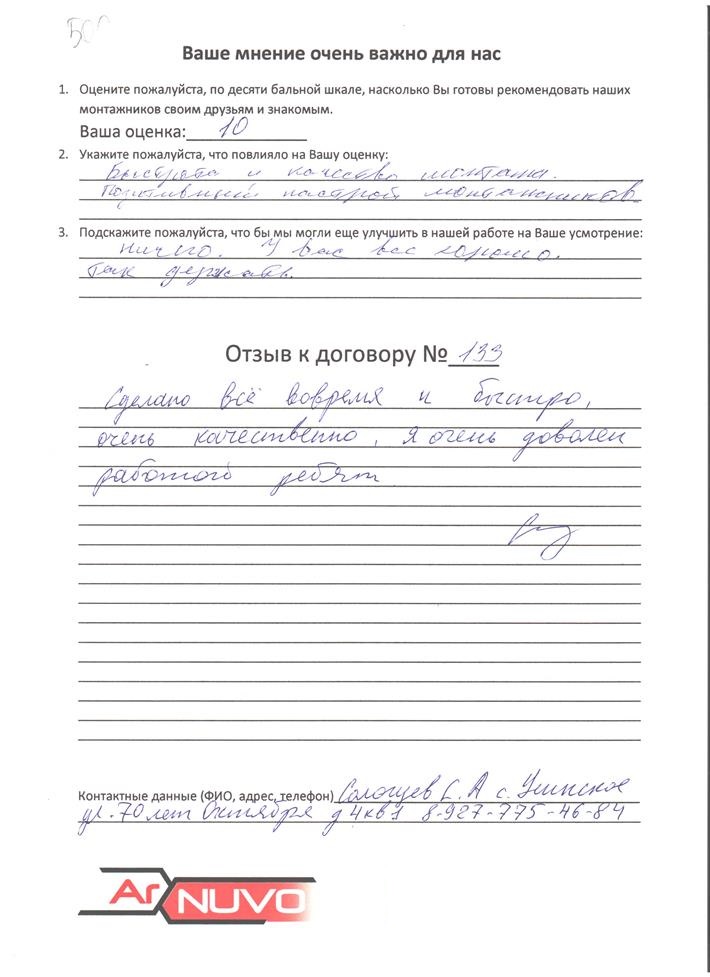 Ваше мнение очень важно для нас
1. Оцените пожалуйста, по десяти бальной шкале, насколько Вы готовы рекомендовать наших
монтажников своим друзьям и знакомым.
Ваша оценка: 10
2. Укажите пожалуйста, что повлияло на Вашу оценку:
Быстрота и качество монтажа.
Позитивный настрой монтажников.
3. Подскажите пожалуйста, что бы мы могли еще улучшить в нашей работе на Ваше усмотрение:
Ничего. У вас все хорошо.
Так держать.
Отзыв к договору № 133
Сделано всё вовремя и быстро,
очень качественно, я очень доволен
работой ребят
Контактные данные (ФИО, адрес, телефон) С. А с.
ул. 70 лет Октября д 4 кв 1 8-927-775-46-84
Ar NUVO